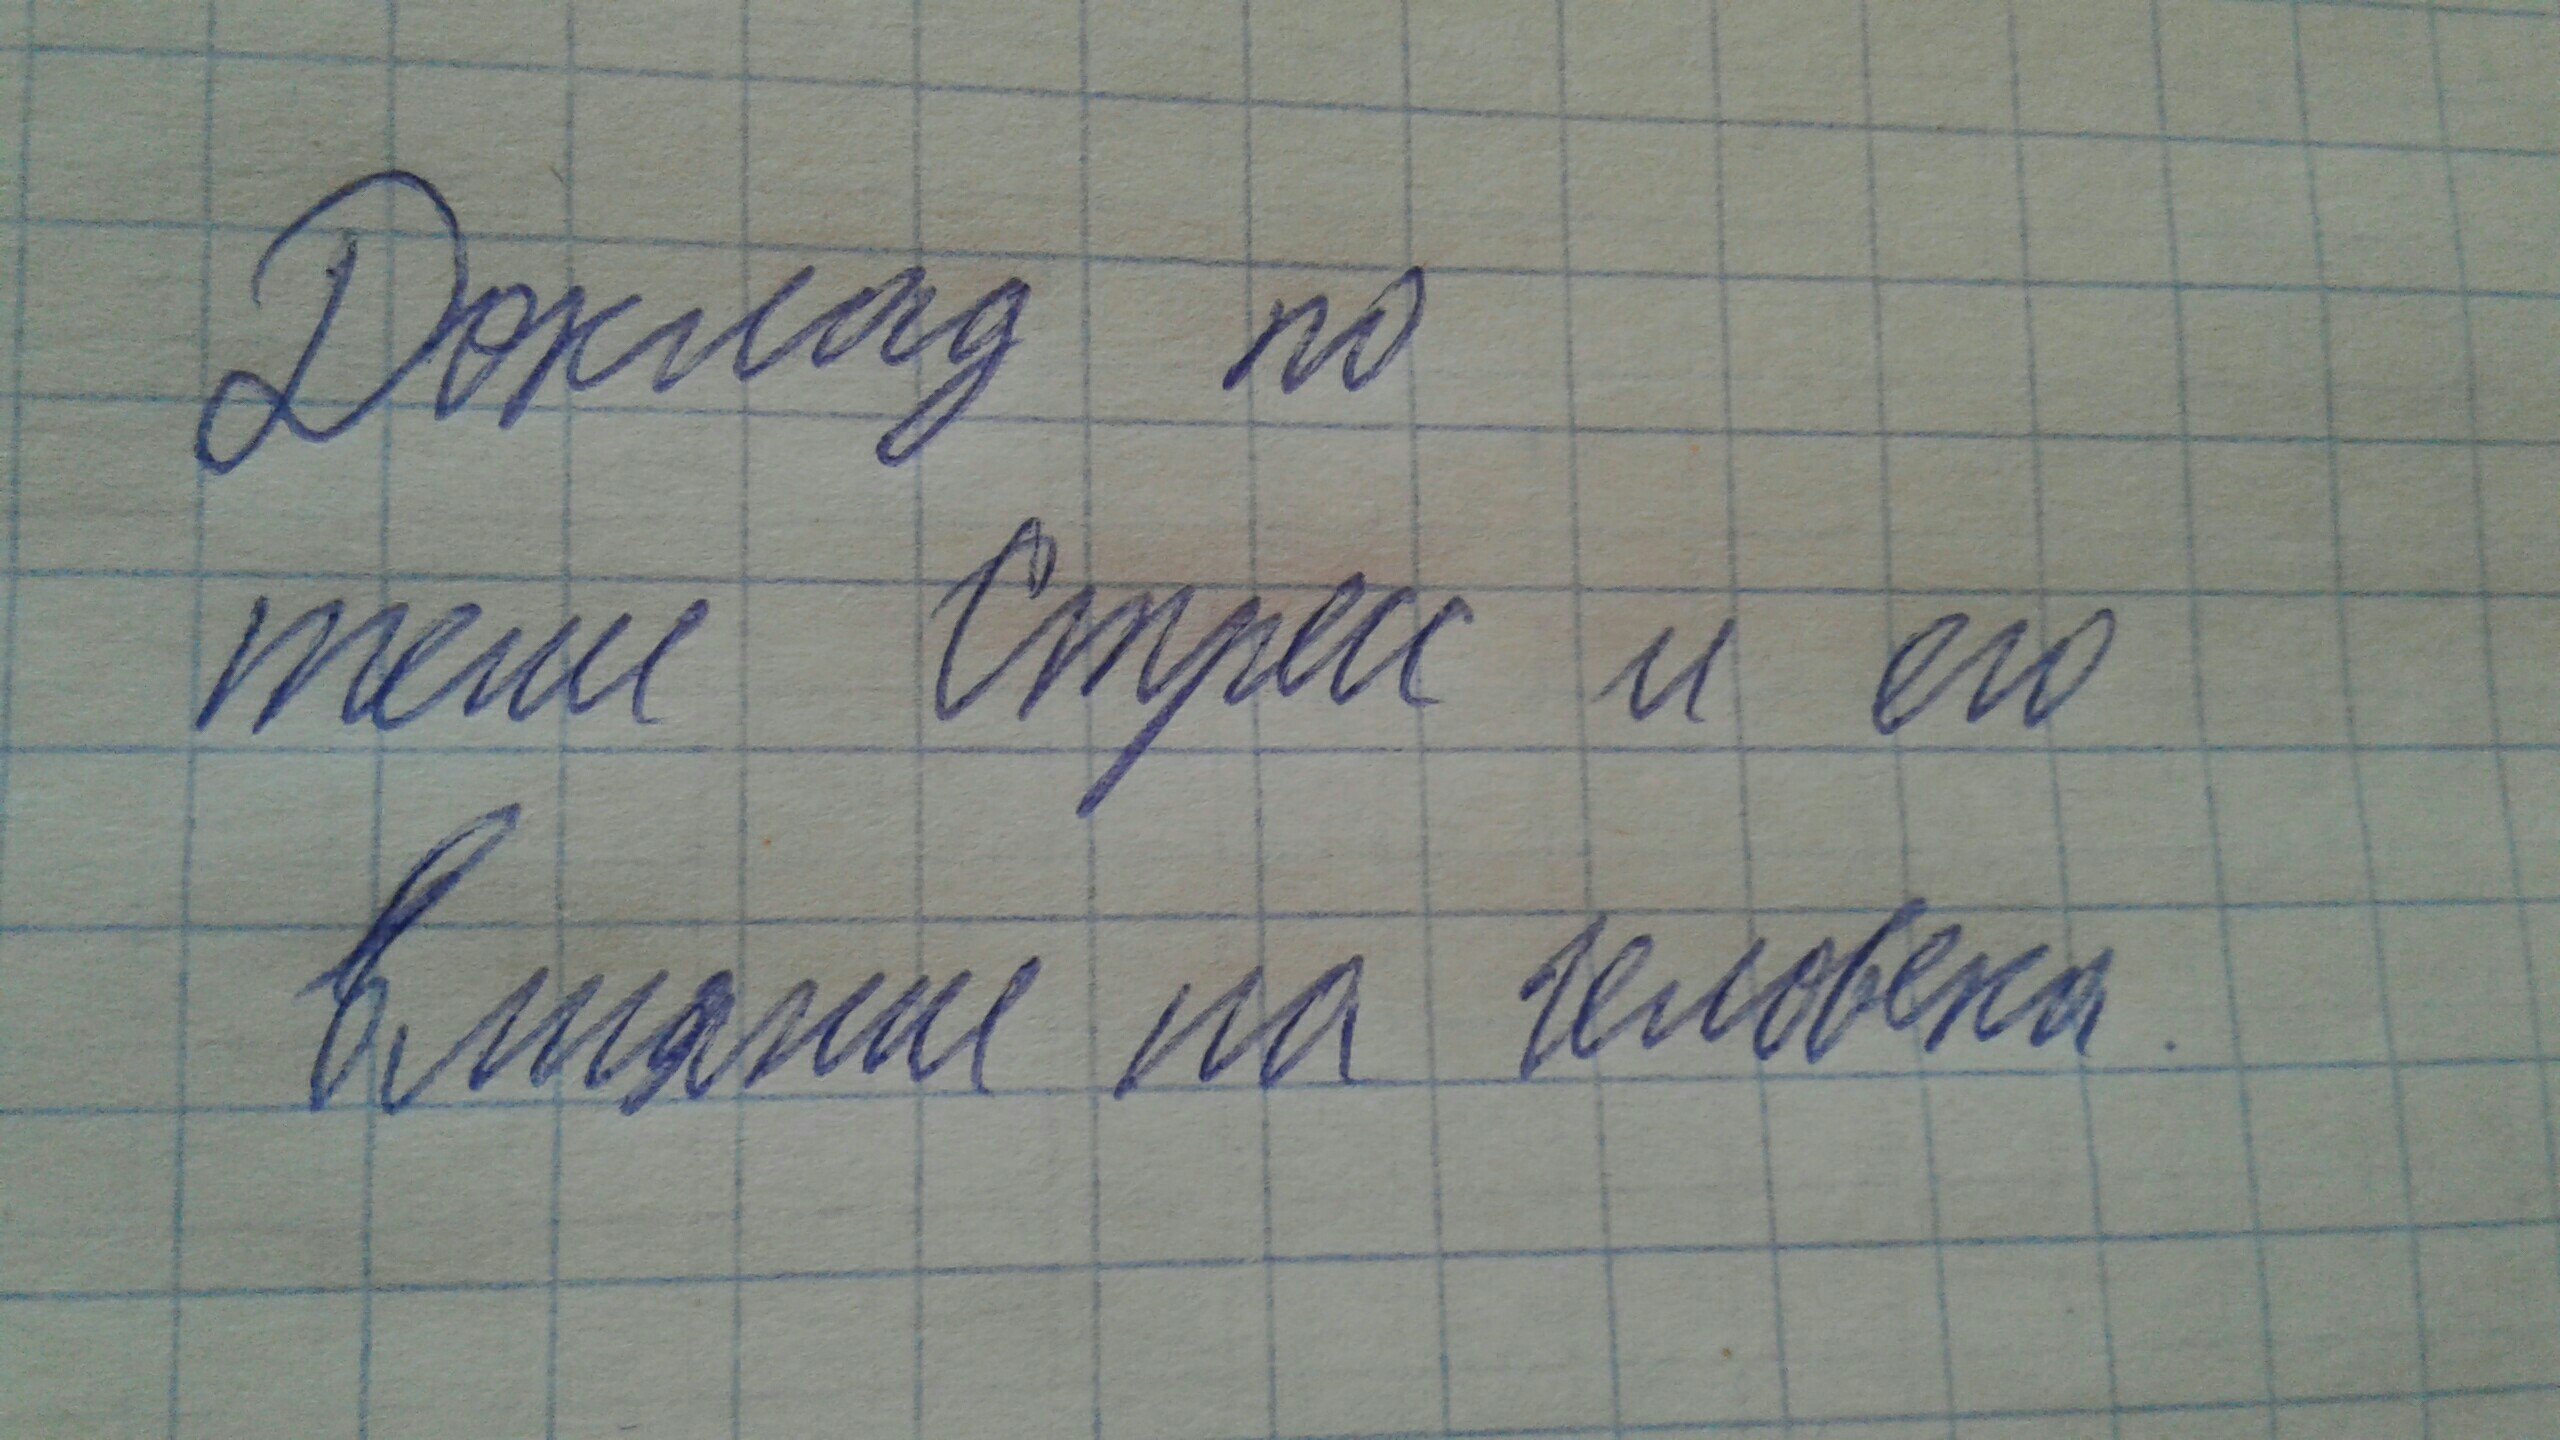 Доклад по
теме Стресс и его
влияние на человека.